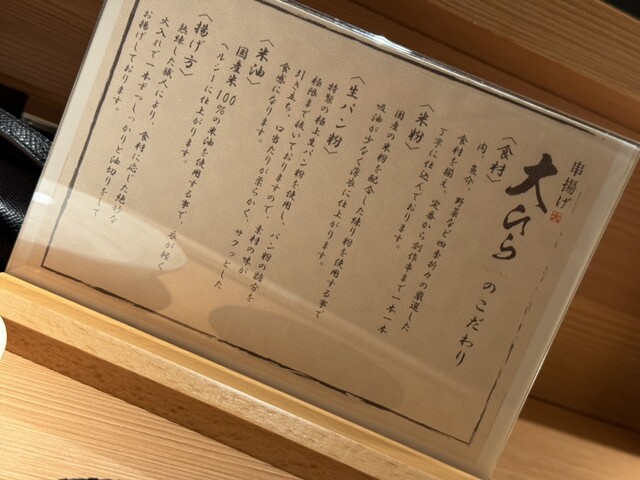 串揚げ
大うら
のこだわり
〈食材〉
肉、魚介、野菜など四季折々の厳選した
食材を揃え、定番から創作串まで一本一本
丁寧に仕込んでおります。
〈米粉〉
国産の米粉を配合した練り粉を使用する事で
吸油が少なく薄衣に仕上がります。
〈生パン粉〉
特製の極上生パン粉を使用し、パン粉の糖分を
極限まで抜いておりますので、素材の味が
引き立ち、口当たりが柔らかく、サクッとした
食感になります。
〈米油〉
国産米100%の米油を使用する事で、衣が軽く
ヘルシーに仕上がります。
〈揚げ方〉
熟練した職人により、食材に応じた絶妙な
火入れで一本ずつしっかりと油切りをして
お揚げしております。